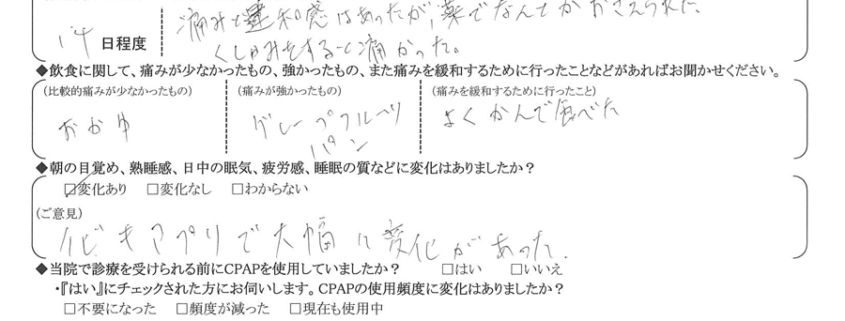 痛みと違和感はあったが、薬でなんとかおさえられた
14日程度 くしゃみをすると痛かった。
◆飲食に関して、痛みが少なかったもの、強かったもの、また痛みを緩和するために行ったことなどがあればお聞かせください。
(比較的痛みが少なかったもの) (痛みが強かったもの) (痛みを緩和するために行ったこと)
おかゆ グレープフルーツ よくかんで食べた
パン
◆朝の目覚め、熟睡感、日中の眠気、疲労感、睡眠の質などに変化はありましたか？
☑変化あり □変化なし □わからない
(ご意見)
イビキアプリで大幅に変化があった.
◆当院で診療を受けられる前にCPAPを使用していましたか？ □はい □いいえ
・『はい』にチェックされた方にお伺いします。CPAPの使用頻度に変化はありましたか？
□不要になった □頻度が減った □現在も使用中